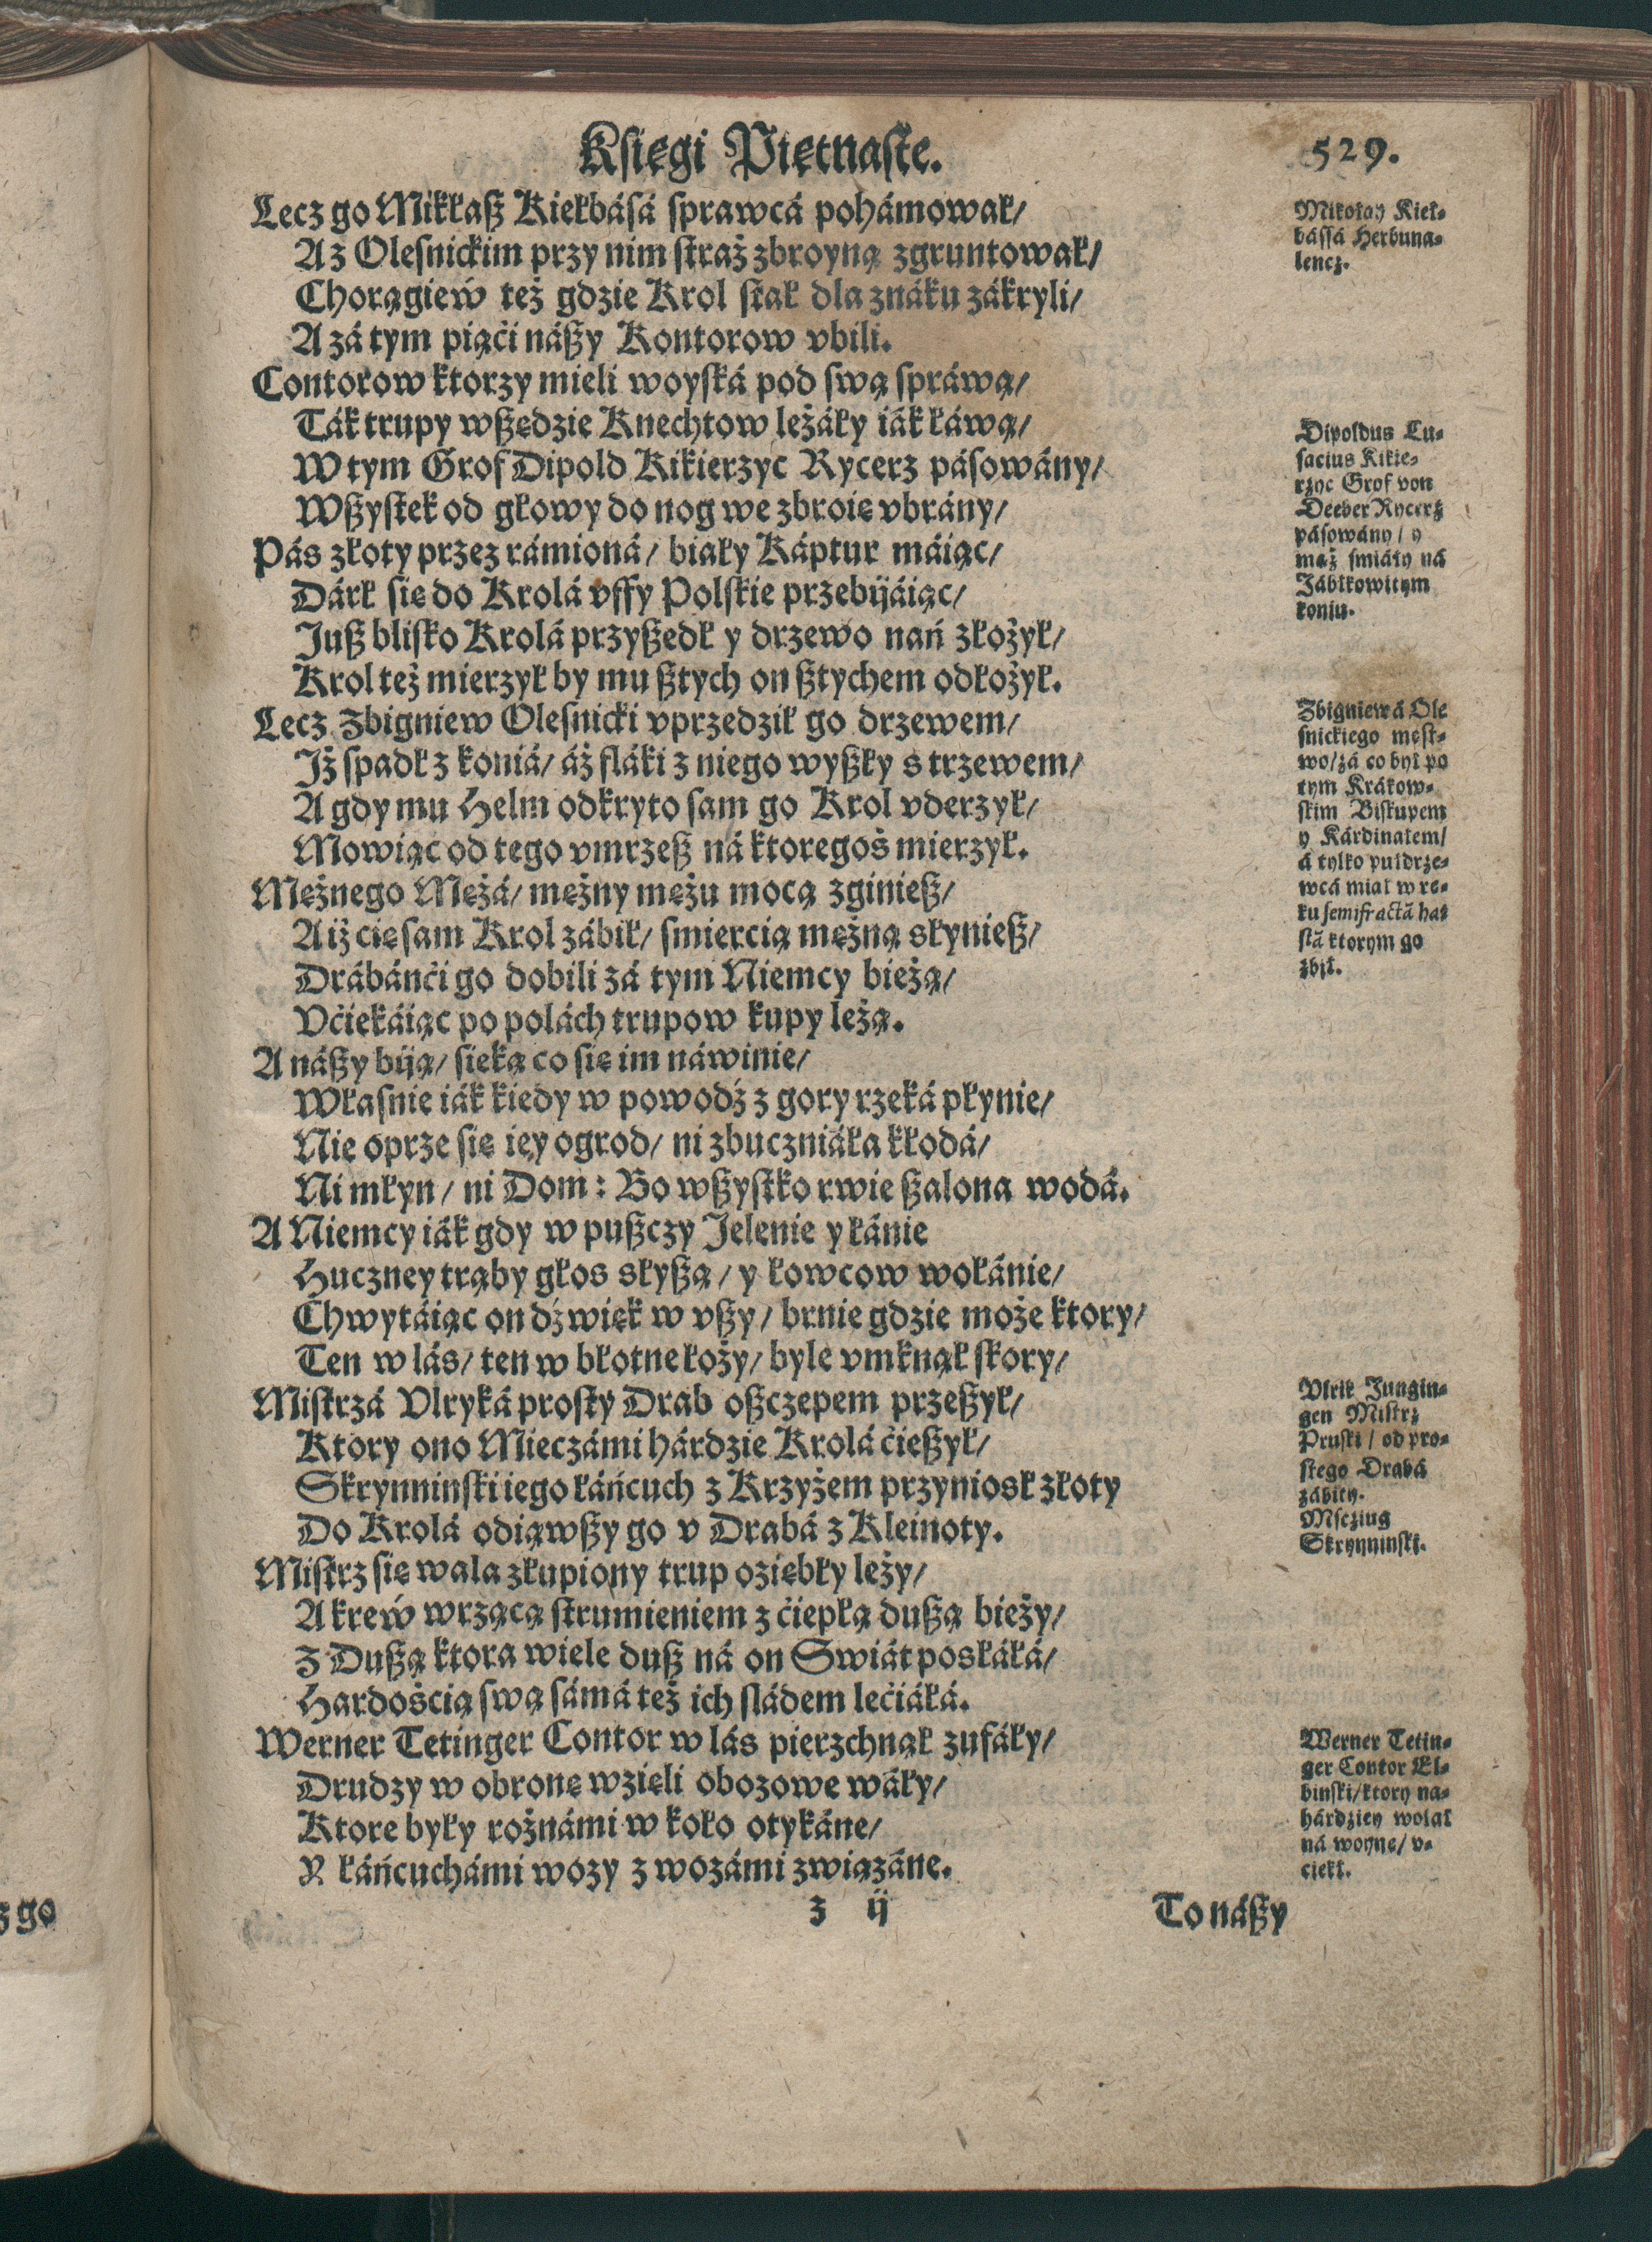 Księgi Piętnaste.
529.
Lecz go Mikłasz Kiełbásá spráwcá pohámował/
Aż Olesnickim przy nim straż zbroyną zgruntował/
Chorągiew też gdzie Krol stał dla znáku zákryli/
A zá tym piąći nászy Kontorow vbili.
Contorow ktorzy mieli woyská pod swą spráwą/
Ták trupy wszędzie Knechtow leżáły iák łáwą/
W tym Grof Dipold Kikierzyc Rycerz pásowány/
Wszystek od głowy do nog we zbroię vbrány/
Pás złoty przez rámioná/ biały Káptur máiąc/
Dárł się do Krolá vffy Polskie przebijáiąc/
Jusz blisko Krolá przyszedł y drzewo nań złożył/
Krol też mierzył by mu sztych on sztychem odłożył.
Lecz Zbigniew Olesnicki vprzedził go drzewem/
Jż spadł z koniá/ áż fláki z niego wyszły s trzewem/
A gdy mu Helm odkryto sam go Krol vderzył/
Mowiąc od tego vmrzesz ná ktoregoś mierzył.
Mężnego Mężá/ mężny mężu mocą zginiesz/
A iż cię sam Krol zábił/ smiercią mężną słyniesz/
Drábánći go dobili zá tym Niemcy bieżą/
Vćiekáiąc po polách trupow kupy leżą.
A nászy biją/ sieką co się im náwinie/
Własnie iák kiedy w powodź z gory rzeká płynie/
Nie oprze się iey ogrod/ ni zbuczniáła kłodá/
Ni młyn/ ni Dom: Bo wszystko rwie szalona wodá.
A Niemcy iák gdy w puszczy Jelenie y łánie
Huczney trąby głos słyszą/ y łowcow wołánie/
Chwytáiąc on dźwięk w vszy/ brnie gdzie może ktory/
Ten w lás/ ten w błotne łoży/ byle vmknął skory/
Mistrzá Vlryká prosty Drab oszczepem przeszył/
Ktory ono Mieczámi hárdzie Krolá ćieszył/
Skrynninski iego łáńcuch z Krzyżem przyniosł złoty
Do Krolá odiąwszy go v Drabá z Kleinoty.
Mistrz się wala złupiony trup oziębły leży/
A krew wrzącą strumieniem z ćiepłą duszą bieży/
Z Duszą ktora wiele dusz ná on Swiát posłáłá/
Hardośćią swą sámá też ich sládem lećiáłá.
Werner Tetinger Contor w lás pierzchnął zufáły/
Drudzy w obronę wzięli obozowe wáły/
Ktore były rożnámi w koło otykáne/
Y łáńcuchámi wozy z wozámi związáne.
z ij
To nászy
Mikołay Kieł-
bássá Herbu na-
lencz.
Dipoldus Lu-
sacius Kikie-
rzyc Grof von
Deeber Rycerz
pásowány/ y
mąż smiáły ná
Jábłkowitym
koniu.
Zbigniewá Ole
snickiego męst-
wo/ zá co był po
tym Krákow-
skim Biskupem
y Kárdinałem/
á tylko pułdrze-
wcá miał w rę-
ku semifractā has
stā ktorym go
zbił.
Vlrik Jungin-
gen Mistrz
Pruski/ od pro-
stego Drabá
zábity.
Mscziug
Skrynninski.
Werner Tetin-
ger Contor El-
binski/ ktory na-
hárdziey wołał
ná woynę/ v-
ciekł.
z go